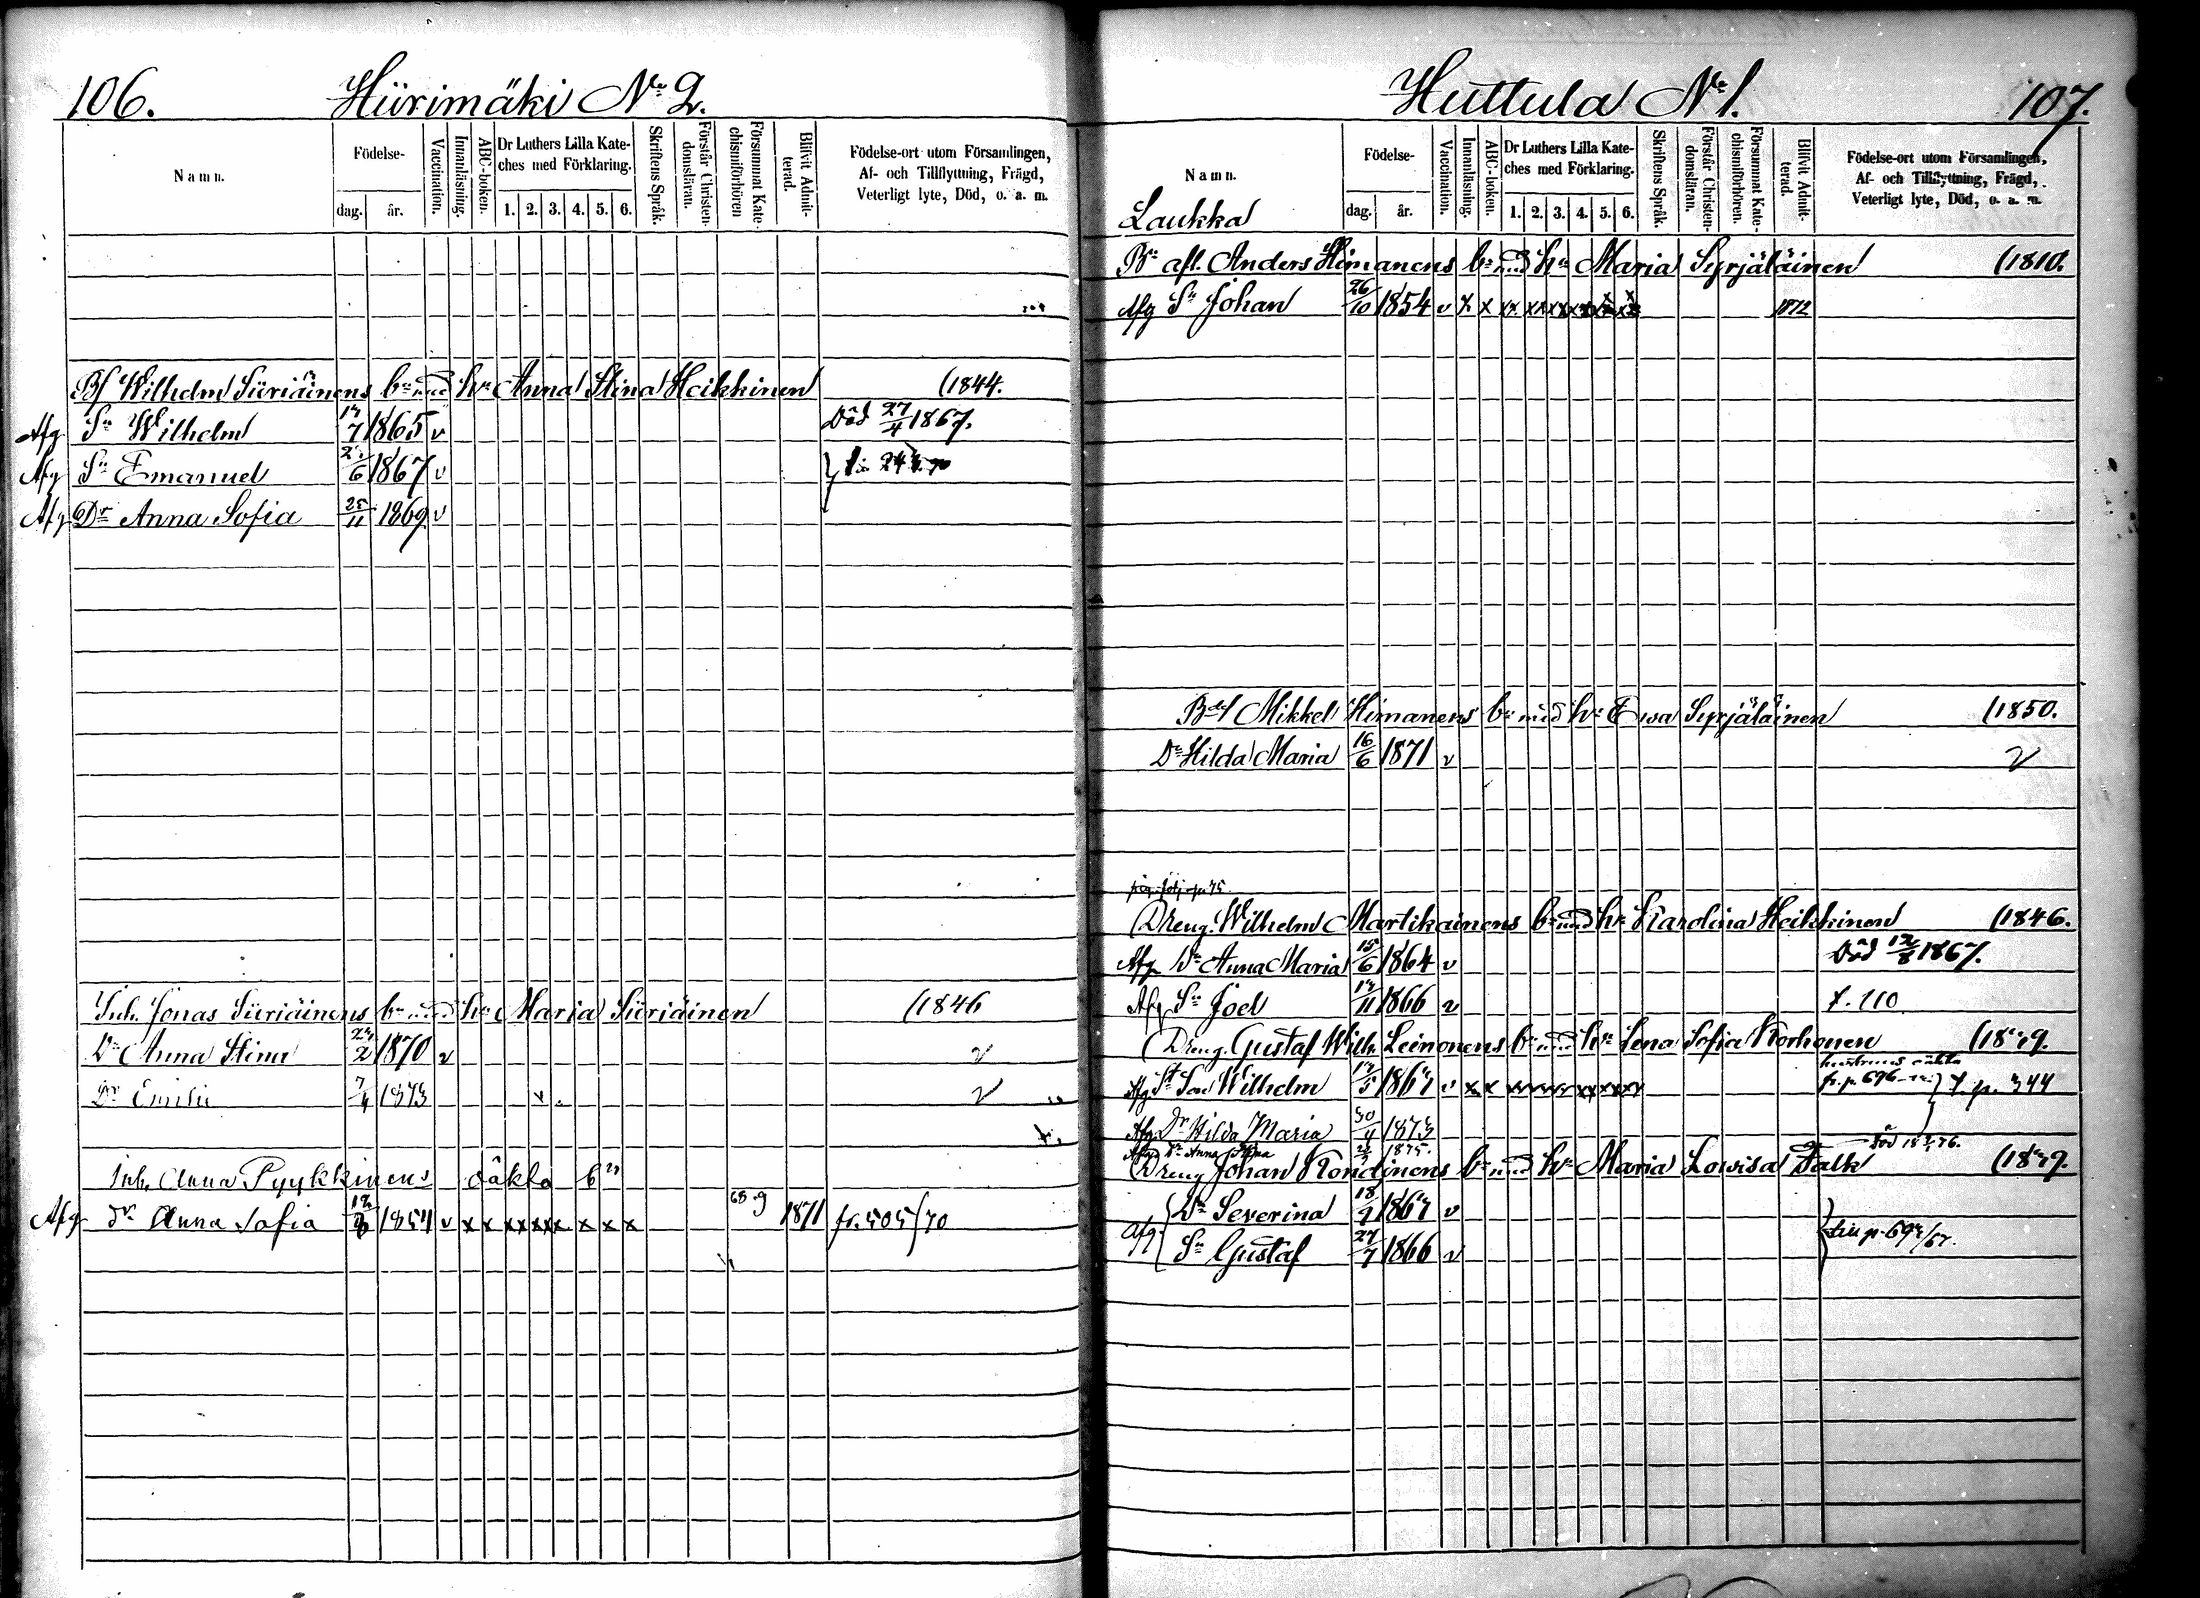 106.
Hiirimäki No 2.
Namn.
Födelse-
dag.
år.
Vaccination.
Innanläsning.
ABC-boken.
Dr Luthers Lilla Kate-
ches med Förklaring.
1. 2. 3. 4. 5. 6.
Skriftens Språk.
Förstår Christen-
domsläran.
Försummat Kate-
chismiförhören
Blifvit Admit-
terad.
Födelse-ort utom Församlingen,
Af- och Tillflyttning, Frägd,
Veterligt lyte, Död, o. a. m.
Wilhelm Siiriäinens bn med hn Anna Stina Heikkinen (1844.
Afg Sn Wilhelm 7 1865 v Död 27/4 1867.
Afg Sn Emanuel 6 1867 v
Afg Dr Anna Sofia 25/11 1869 v
Inh. Jonas Siiriäinens bn med hn Maria Siiriäinen (1846
Dr Anna Stina 2 1870 v v
Dr Emilie 7/4 1873 v
Inh. Anna Pyykkinens oäkta bn
Afg dr Anna Sofia 1854 v x x x x x x x x x 68 69 1871 fr. 505/70
Huttula No 1.
107.
Namn.
Laukka
Födelse-
dag.
år.
Vaccination.
Innanläsning.
ABC-boken.
Dr Luthers Lilla Kate-
ches med Förklaring.
1. 2. 3. 4. 5. 6.
Skriftens Språk.
Förstår Christen-
domsläran.
Försummat Kate-
chismiförhören.
Blifvit Admit-
terad.
Födelse-ort utom Församlingen,
Af- och Tillflyttning, Frägd,
Veterligt lyte, Död, o. a. m.
Bn afl. Anders Himanens bn med hn Maria Syrjäläinen (1810.
Afg Sn Johan 26/10 1854 v x x 1872
Mikkel Himanens bn med hn Ewa Syrjäläinen (1850.
Dr Hilda Maria 16/6 1871 v v
Dreng. Wilhelm Martikainens bn med hn Karolina Heikkinen (1846.
Afg Dr Anna Maria 15/6 1864 v Död 12/8 1867.
Afg Sn Joel 11 1866 v f. 110
Dreng. Gustaf Wilh. Leinonens bn med hn Lena Sofia Korhonen
hustruns oäkta
Afg Son Wilhelm 5 v x x fr. p. 696 f. p. 344
Afg Dr Hilda Maria 30/4 1873
Afg Dr Anna Stina 1875. Död
Dreng Johan Kondinens bn med hn Maria Lowisa Falk
Dr Severina v
Afg.
Sn Gustaf 27/7 1866 v